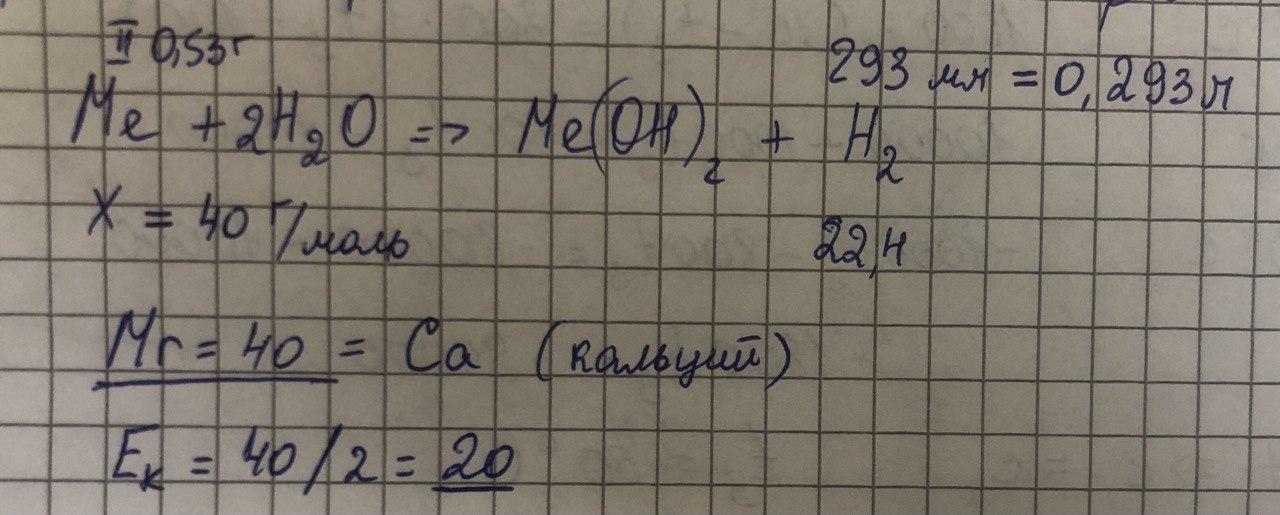 II 0,53 г 293 мл = 0,293 л
Me + 2H₂O => Me(OH)₂ + H₂
X = 40 г/моль 22,4
Mr = 40 = Ca (кальций)
Eк = 40/2 = 20